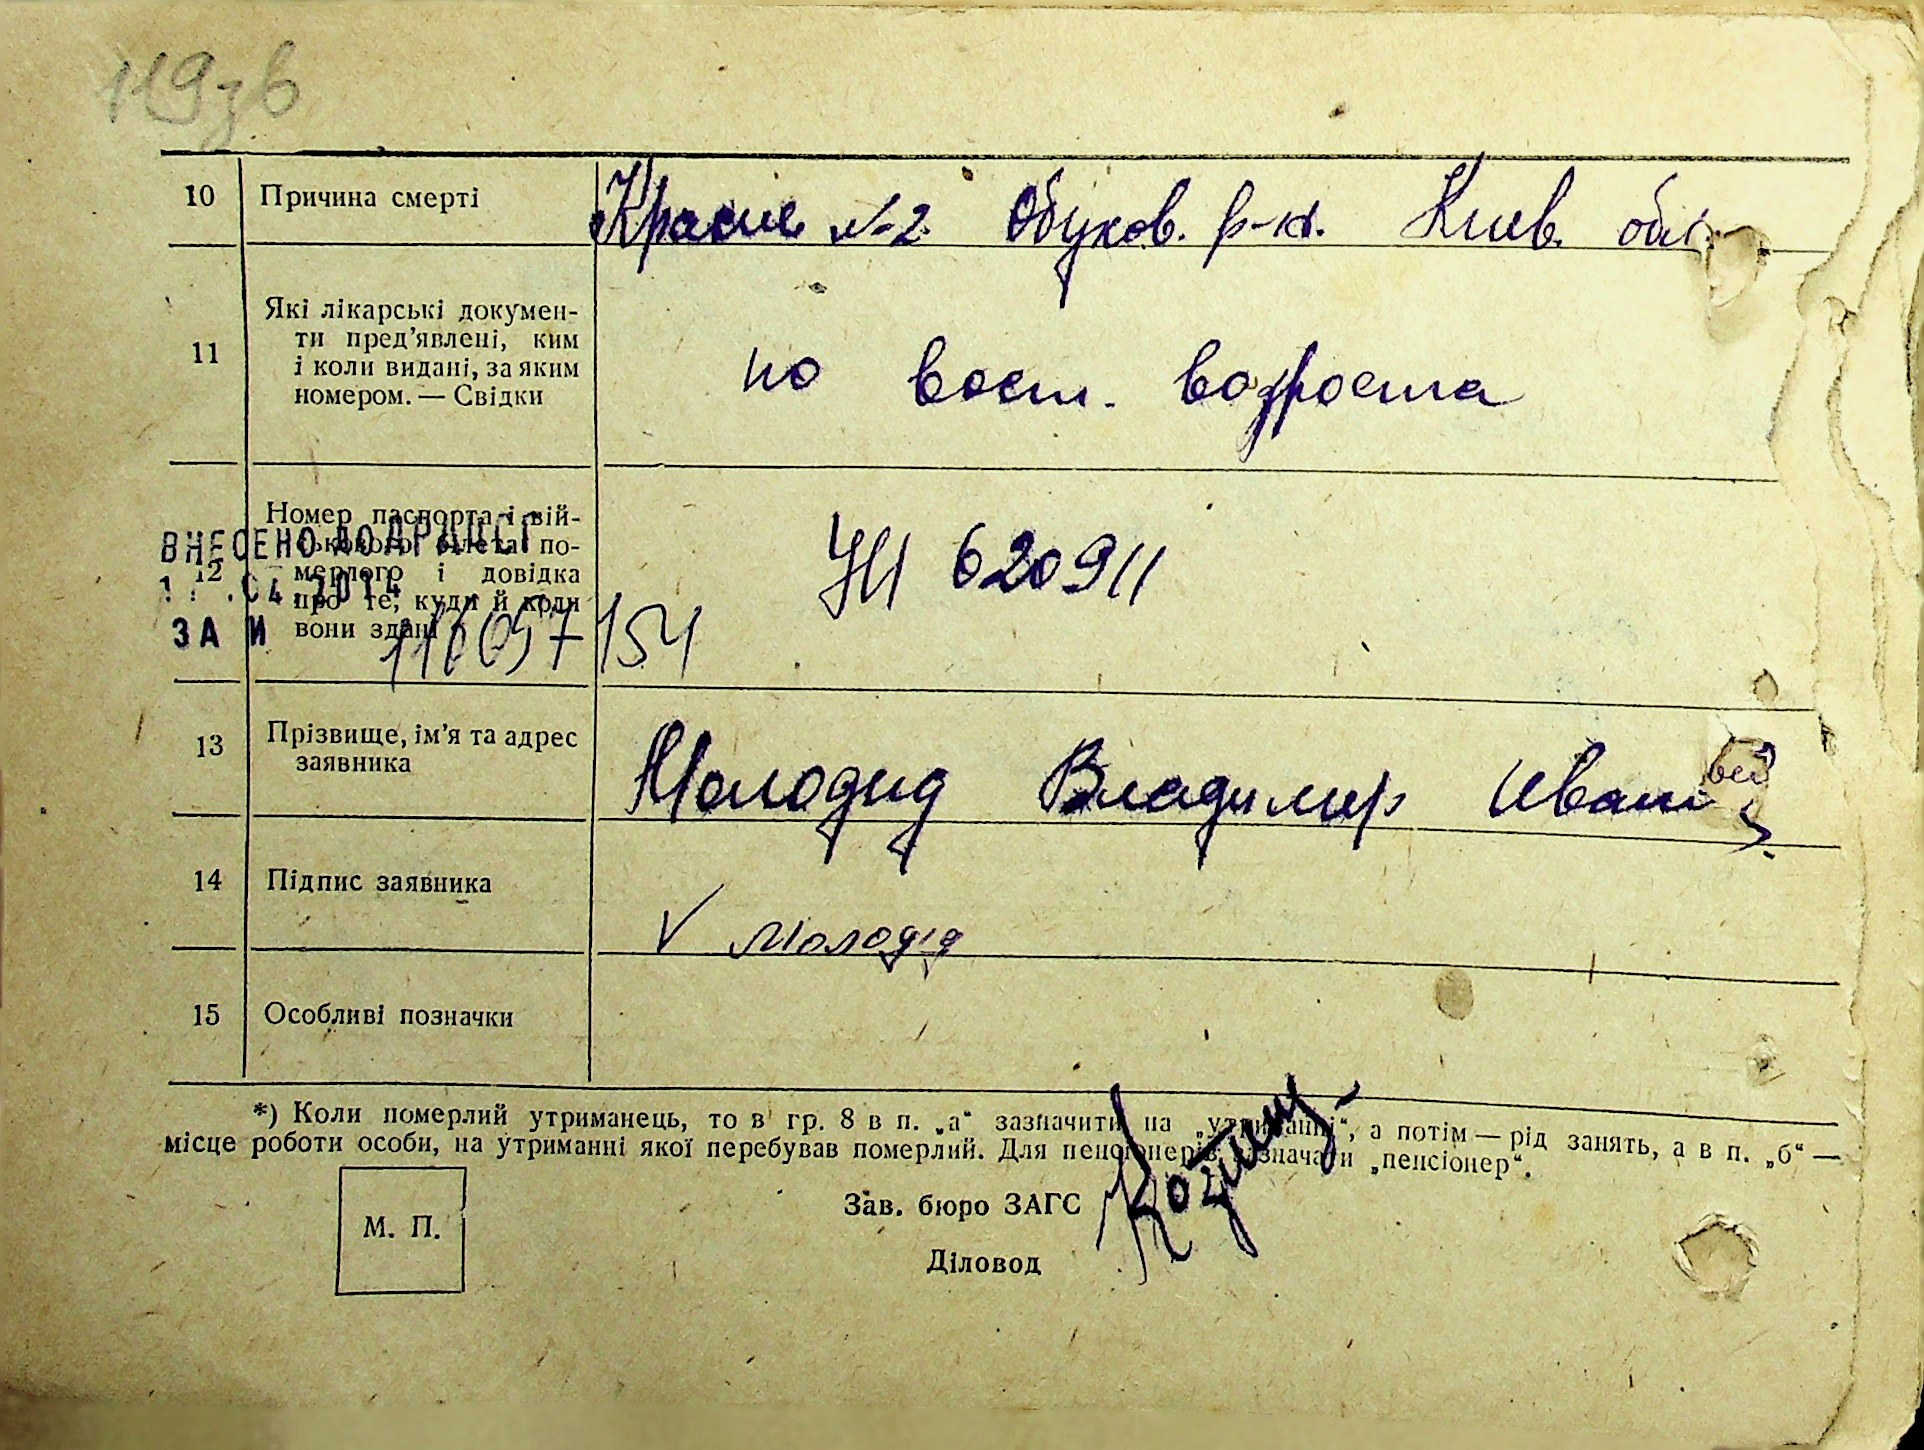 119зв
10 Причина смерті Красне №2 Обухов. р-н. Киев. обл.
11 Які лікарські докумен-
ти пред’явлені, ким
і коли видані, за яким
номером. — Свідки
по восст. возроста
12 Номер паспорта і вій-
ськового білета по-
мерлого і довідка
про те, куди й коли
вони здані
620911
ВНЕСЕНО ДО ДРАЦСГ
.04.2014
ЗА И
154
13 Прізвище, ім’я та адрес
заявника
Молодид Владимир Иван
14 Підпис заявника
V Молодід
15 Особливі позначки
*) Коли померлий утриманець, то в гр. 8 в п. „а“ зазначити на „утриманні“, а потім — рід занять, а в п. „б“ —
місце роботи особи, на утриманні якої перебував померлий. Для пенсіонерів зазначати „пенсіонер“.
М. П.
Зав. бюро ЗАГС
Діловод